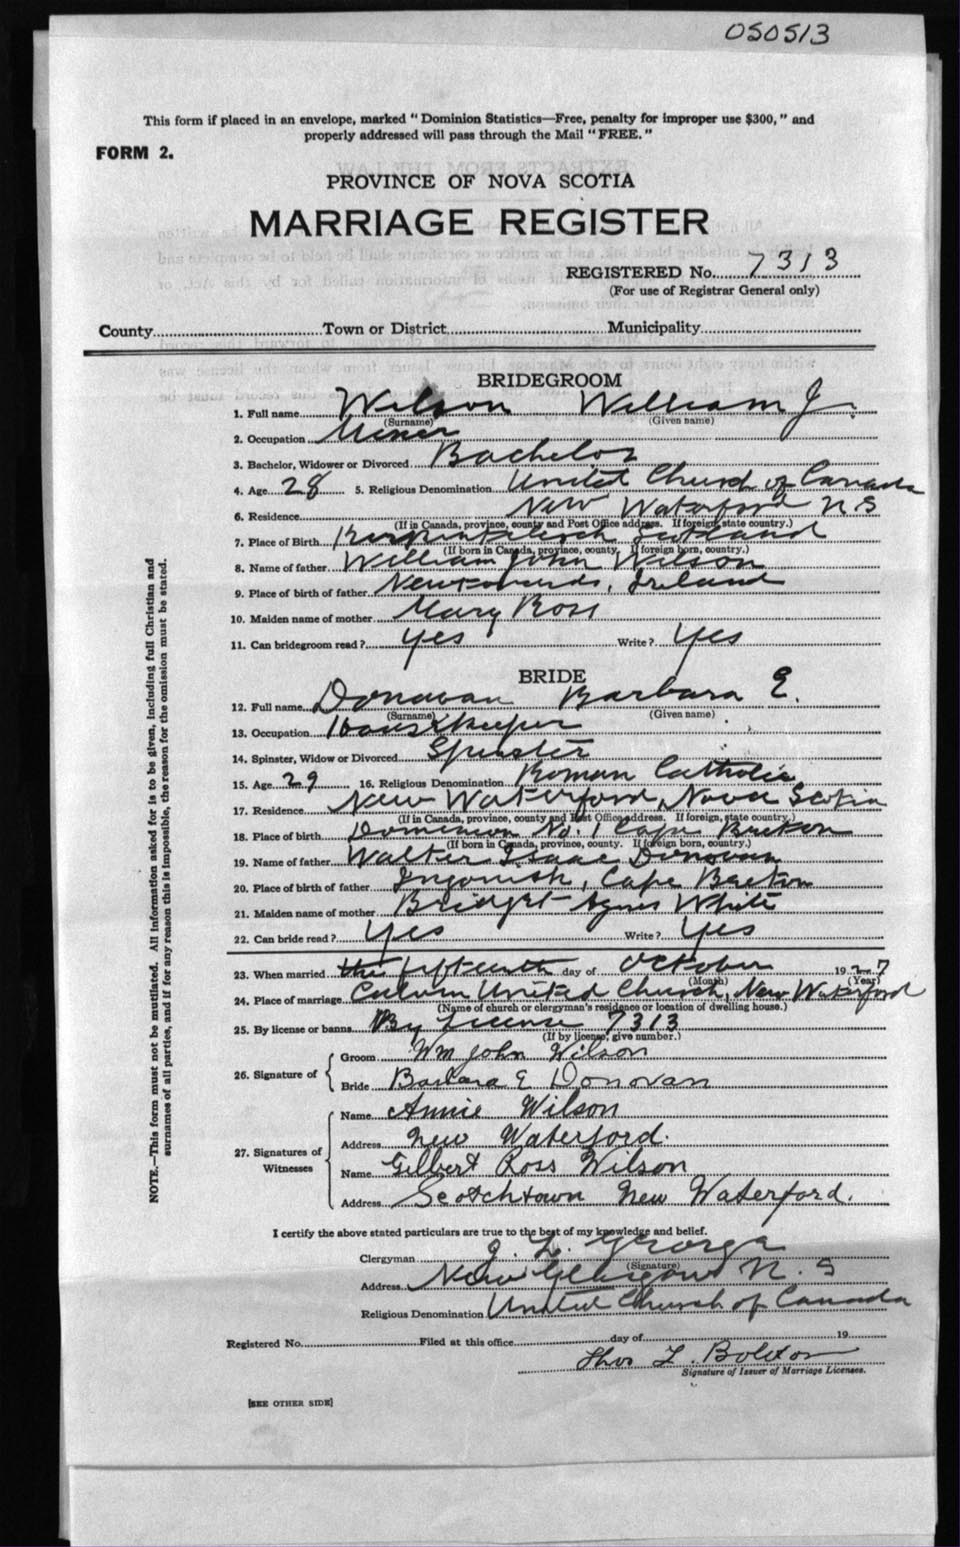 050513
This form if placed in an envelope, marked "Dominion Statistics—Free, penalty for improper use $300," and
properly addressed will pass through the Mail "FREE."
FORM 2.
PROVINCE OF NOVA SCOTIA
MARRIAGE REGISTER
REGISTERED No. 7313
(For use of Registrar General only)
County Town or District Municipality
BRIDEGROOM
1. Full name Wilson William J
(Surname) (Given name)
2. Occupation Miner
3. Bachelor, Widower or Divorced Bachelor
4. Age 28 5. Religious Denomination United Church of Canada
6. Residence New Waterford N S
(If in Canada, province, county and Post Office address. If foreign, state country.)
7. Place of Birth Scotland
(If born in Canada, province, county. If foreign born, country.)
8. Name of father William John Wilson
9. Place of birth of father Ireland
10. Maiden name of mother Mary Ross
11. Can bridegroom read? yes Write? yes
BRIDE
12. Full name Donovan Barbara E.
(Surname) (Given name)
13. Occupation Housekeeper
14. Spinster, Widow or Divorced Spinster
15. Age 29 16. Religious Denomination Roman Catholic
17. Residence New Waterford, Nova Scotia
(If in Canada, province, county and Post Office address. If foreign, state country.)
18. Place of birth Dominion No. 1 Cape Breton
(If born in Canada, province, county. If foreign born, country.)
19. Name of father Walter Isaac Donovan
20. Place of birth of father Ingonish, Cape Breton
21. Maiden name of mother Bridget Agnes White
22. Can bride read? Yes Write? Yes
23. When married the fifteenth day of October 1927
(Month) (Year)
24. Place of marriage Calvin United Church, New Waterford
(Name of church or clergyman's residence or location of dwelling house.)
25. By license or banns By License 7313
(If by license, give number.)
26. Signature of Groom Wm John Wilson
Bride Barbara E Donovan
27. Signatures of Witnesses Name Annie Wilson
Address New Waterford.
Name Gilbert Ross Wilson
Address Scotchtown New Waterford.
I certify the above stated particulars are true to the best of my knowledge and belief.
Clergyman J. L. George
(Signature)
Address New Glasgow N. S
Religious Denomination United Church of Canada
Registered No. Filed at this office day of 19
Thos L. Bolton
Signature of Issuer of Marriage Licenses.
[SEE OTHER SIDE]
NOTE.—This form must not be mutilated. All information asked for is to be given, including full Christian and
surnames of all parties, and if for any reason this is impossible, the reason for the omission must be stated.